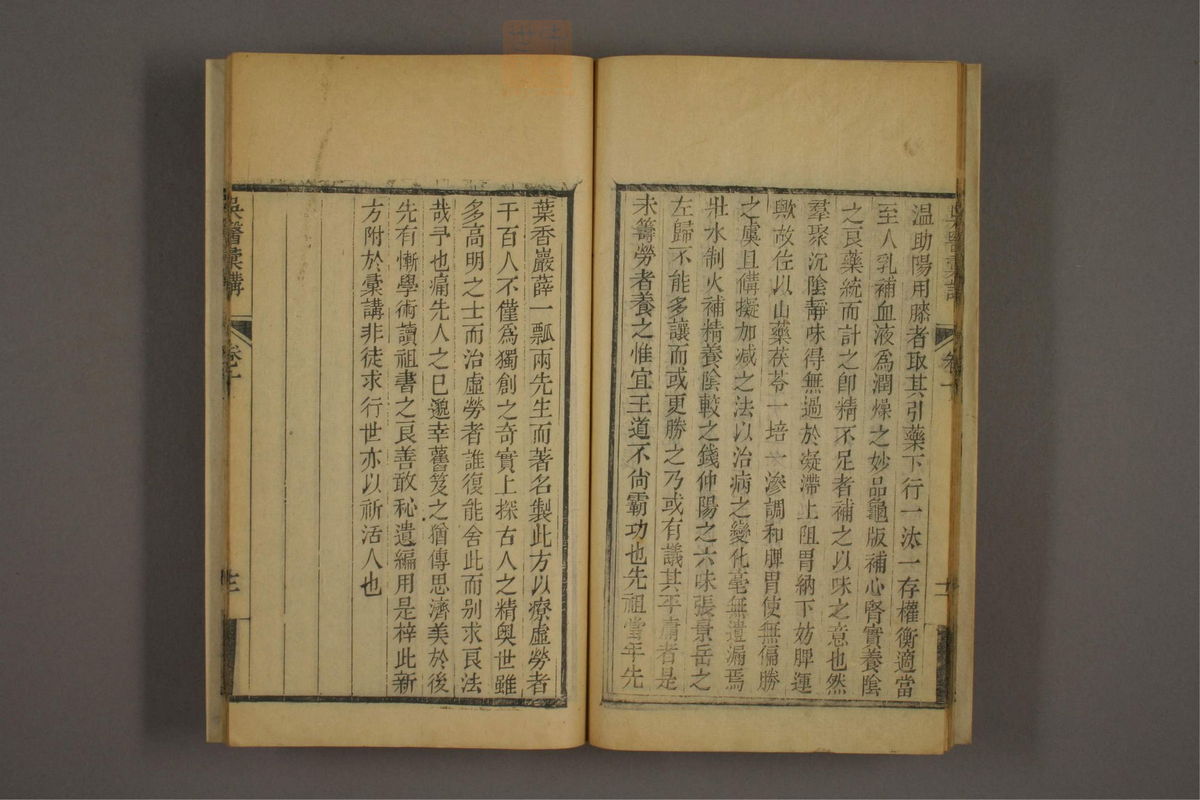 温助陽用膝者取其引藥下行一汰一存權衡適當
至人乳補血液為潤燥之妙品龜版補心腎實養陰
之良藥統而計之卽精不足者補之以味之意也然
羣聚沉陰靜味得無過於凝滯上阻胃納下妨脾運
歟故佐以山藥茯苓一培一滲調和脾胃使無偏勝
之虞且備擬加减之法以治病之變化毫無遺漏焉
壯水制火補精養陰較之錢仲陽之六味張景岳之
左歸不能多讓而或更勝之乃或有議其平庸者是
未籌勞者養之惟宜王道不尙霸功也先祖當年先
葉香巖薛一瓢兩先生而著名製此方以療虛勞者
千百人不僅爲獨創之奇實上探古人之精奧世雖
多高明之士而治虛勞者誰復能舍此而别求良法
哉予也痛先人之已邈幸舊笈之猶傳思濟美於後
先有慚學術讀祖書之良善敢秘遺編用是梓此新
方附於彙講非徒求行世亦以祈活人也
吳醫彙講
卷十